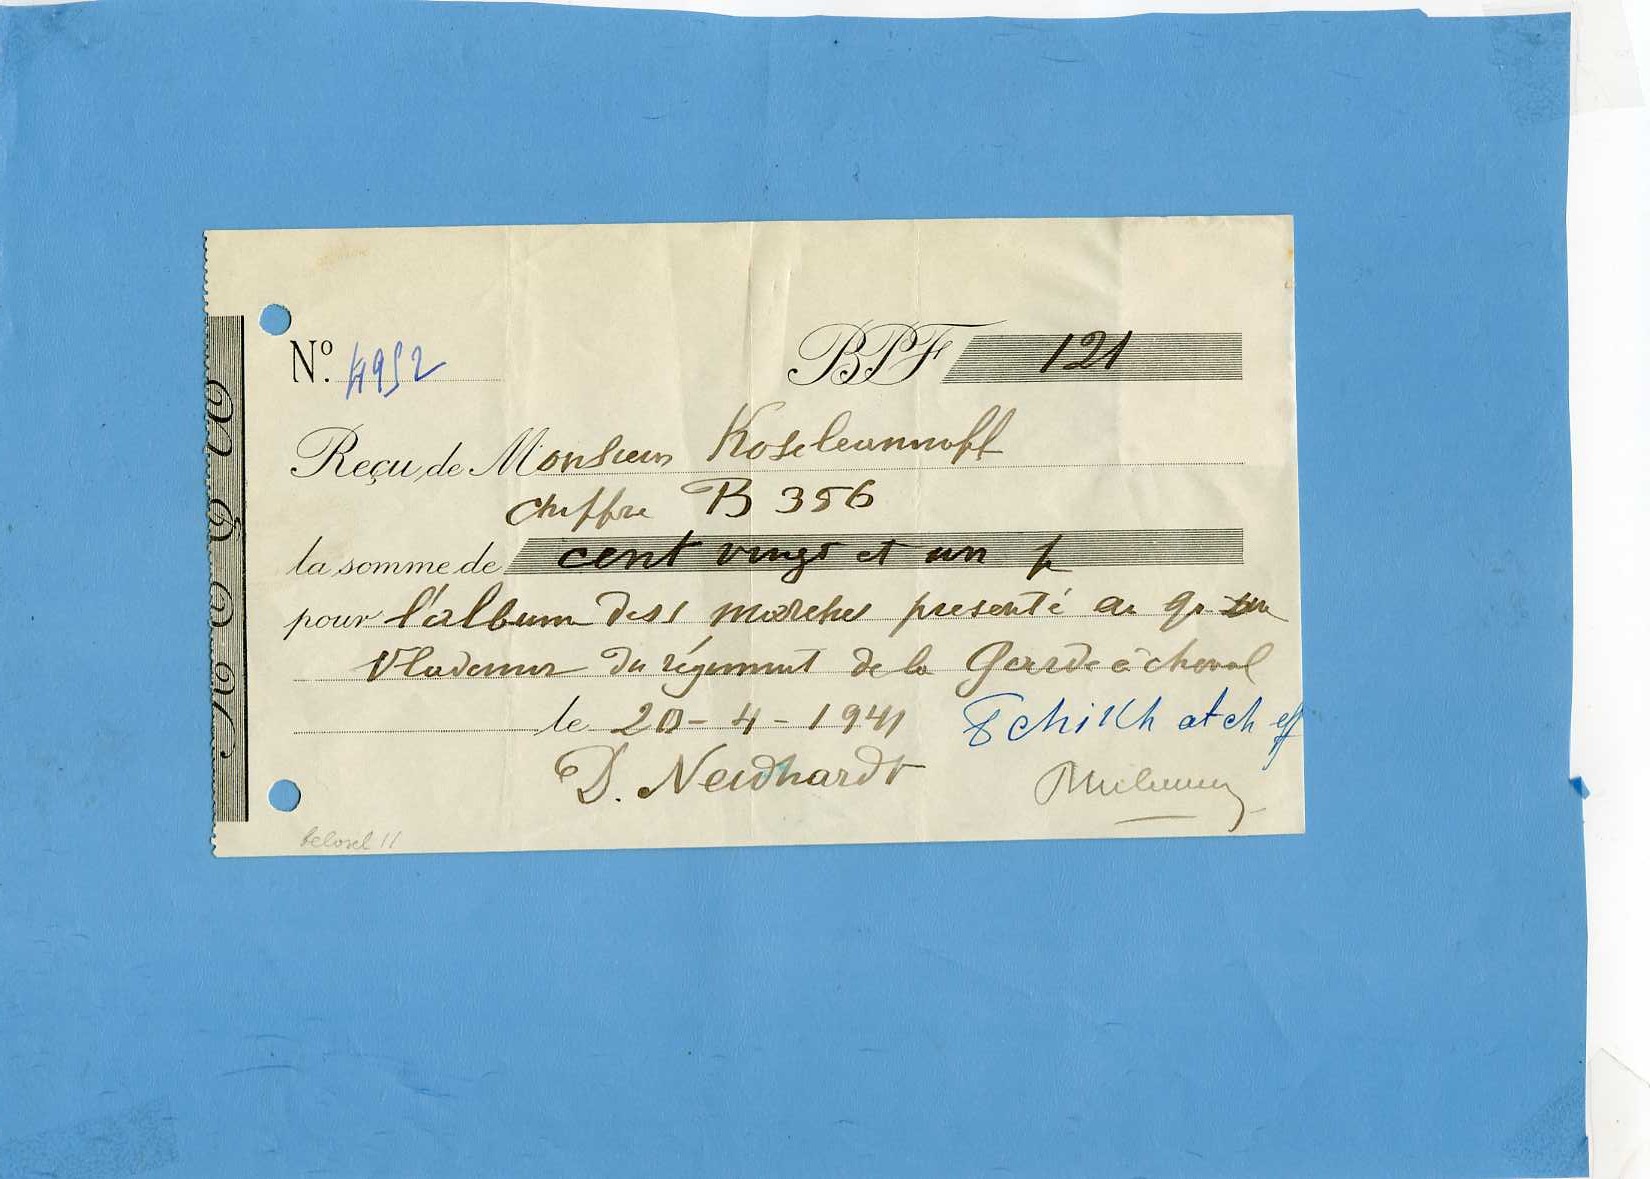 Nº. 4952 BPF 121
Reçu de Monsieur Koscleannoff
chiffre B 356
la somme de cent vingt et un f
pour l'album des marches presenté au gr duc
Vladimir du régiment de la Garde à cheval
le 20-4-1941 Tchikhatcheff
D. Neidhardt